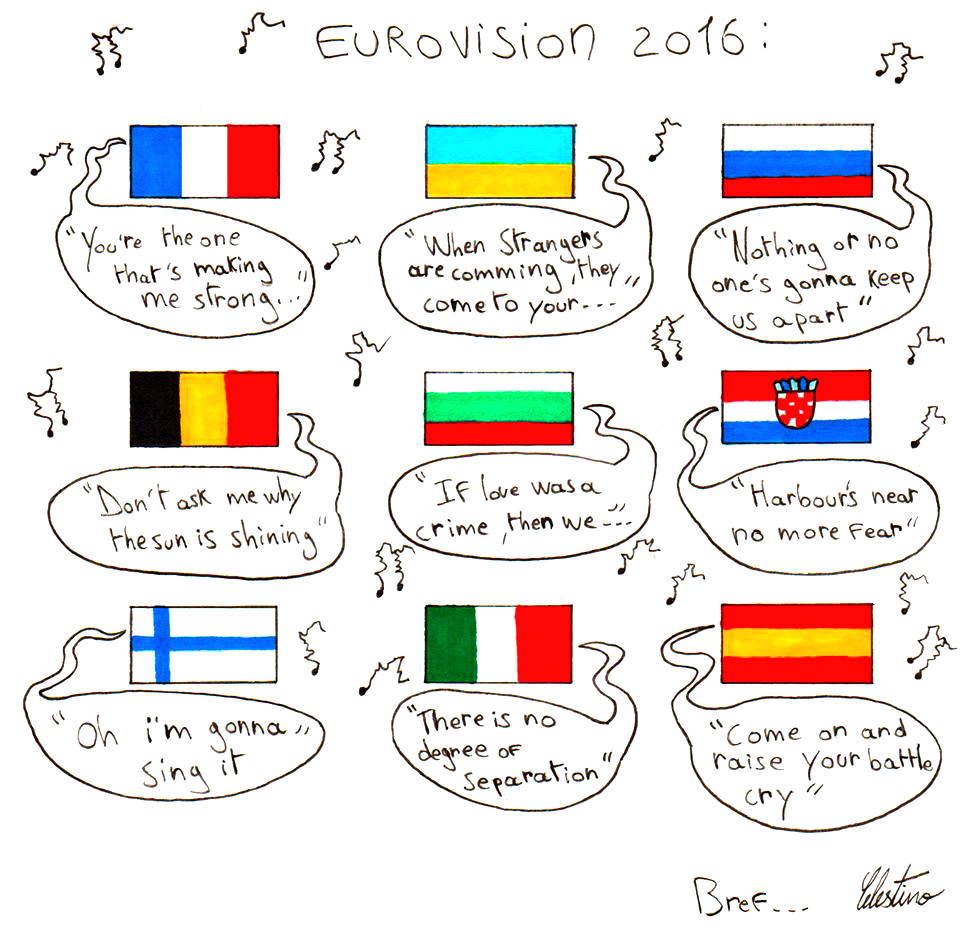 EUROVISION 2016 :
"You're the one
that's making
me strong..."
"When Strangers
are comming, they"
come to your---
"Nothing or no
one's gonna keep
us apart"
"Don't ask me why
the sun is shining"
"If love was a
crime, then we ---"
"Harbour's near
no more fear"
"Oh i'm gonna"
sing it
"There is no
degree of
separation"
"Come on and
raise your battle
cry"
Bref...
Celestino